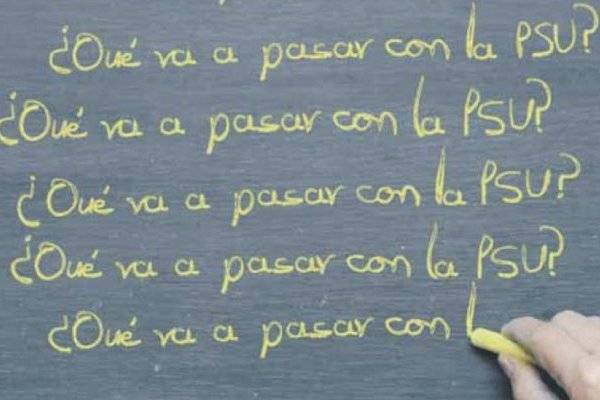 ¿Qué va a pasar con la PSU?
¿Qué va a pasar con la PSU?
¿Qué va a pasar con la PSU?
¿Qué va a pasar con la PSU?
¿Qué va a pasar con l